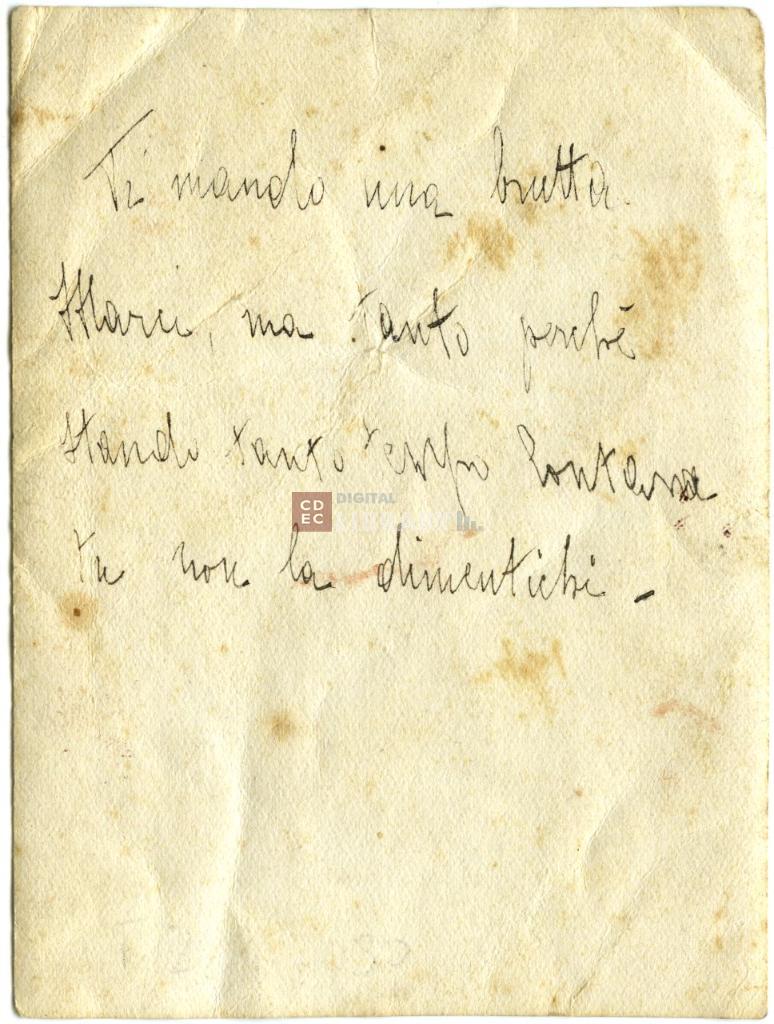 Ti mando una brutta
Mari, ma tanto perchè
stando tanto tempo lontana
tu non la dimentichi -
CD
EC
DIGITAL
LIBRARY